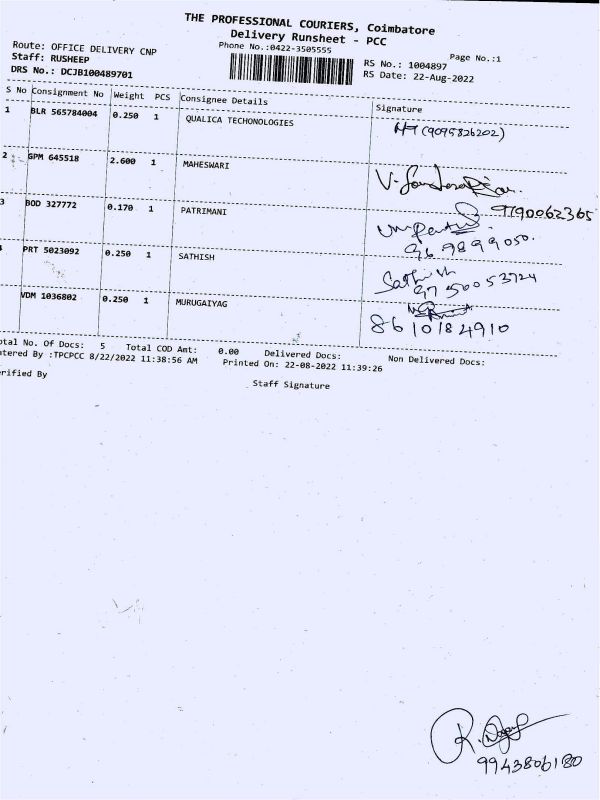 THE PROFESSIONAL COURIERS, Coimbatore
Delivery Runsheet - PCC
Route: OFFICE DELIVERY CNP
Phone No.:0422-3505555
Page No.:1
Staff: RUSHEEP
RS No.: 1004897
DRS No.: DCJB100489701
RS Date: 22-Aug-2022
S No Consignment No Weight PCS Consignee Details Signature
1 BLR 565784004 0.250 1 QUALICA TECHONOLOGIES (9095826202)
2 GPM 645518 2.600 1 MAHESWARI
9790062365
3 BOD 327772 0.170 1 PATRIMANI
969899050.
PRT 5023092 0.250 1 SATHISH Sathish
9750053724
VDM 1036802 0.250 1 MURUGAIYAG
8610184910
otal No. Of Docs: 5 Total COD Amt: 0.00 Delivered Docs: Non Delivered Docs:
ntered By :TPCPCC 8/22/2022 11:38:56 AM Printed On: 22-08-2022 11:39:26
erified By
Staff Signature
9943806180